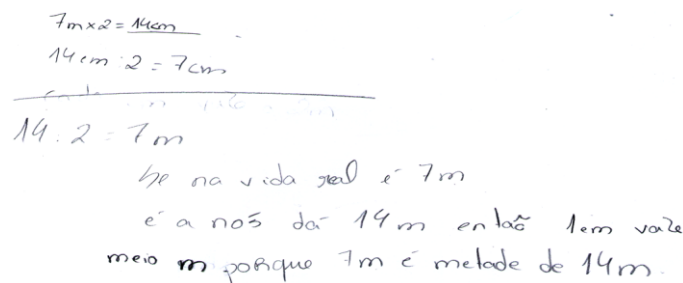 7m x 2 = 14cm
14cm : 2 = 7cm
14 : 2 = 7m
Se na vida real é 7m
e a nós dá 14m entaõ 1cm vale
meio m porque 7m é metade de 14m.